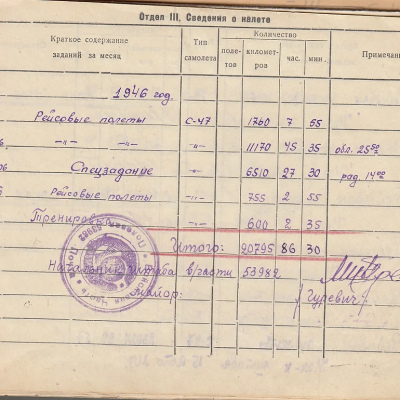 Отдел III. Сведения о налете
Краткое содержание заданий за месяц
Тип самолета
Количество
поле-тов
километ-ров
час.
мин.
Примечан
1946 год.
Рейсовые полеты С-47 1760 7 55
—"— —"— —"— 11170 45 35 обл. 25
Спецзадание —"— 6510 27 30 рад. 14
Рейсовые полеты —"— 755 2 55
Трениров —"— 600 2 35
Итого: 20795 86 30
Начальник штаба в/части 53982
майор: / Гуревич /